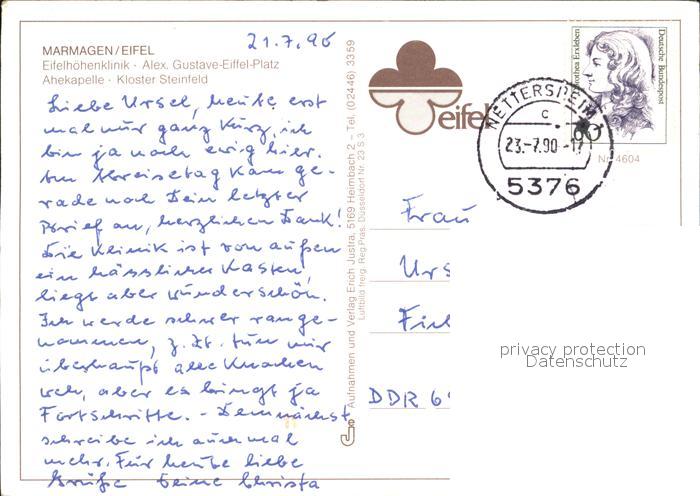 21.7.90
MARMAGEN/EIFEL
Eifelhöhenklinik · Alex. Gustave-Eiffel-Platz
Ahekapelle · Kloster Steinfeld
Liebe Ursel, heute erst
mal nur ganz kurz, ich
bin ja noch ewig hier.
Am Abreisetag kam ge-
rade noch Dein letzter
Brief an, herzlichen Dank!
Die Klinik ist von außen
ein hässlicher Kasten,
liegt aber wunderschön.
Ich werde schwer range-
nommen, z. Zt. tun mir
überhaupt alle Knochen
weh, aber es bringt ja
Fortschritte. - Demnächst
schreibe ich auch mal
mehr. Für heute liebe
Grüße Deine Christa
Aufnahmen und Verlag Erich Justra, 5169 Heimbach 2 – Tel. (02446) 3359
Luftbild freig. Reg.Präs. Düsseldorf Nr. 23 S 3
eifel
NETTERSHEIM
c
23.-7.90-17
5376
Dorothea Erxleben
Deutsche Bundespost
60
Nr. 4604
Frau
Urs
DDR 6
privacy protection
Datenschutz